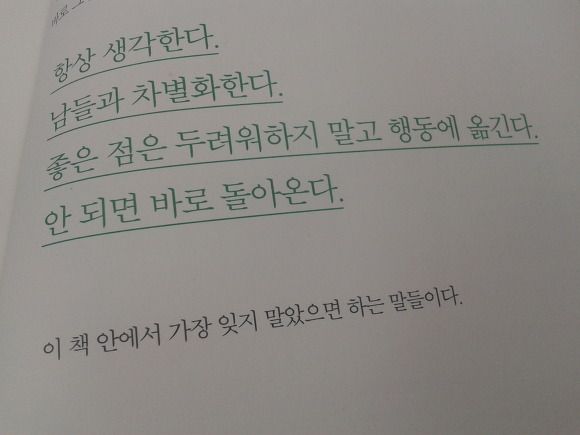 바로
항상 생각한다.
남들과 차별화한다.
좋은 점은 두려워하지 말고 행동에 옮긴다.
안 되면 바로 돌아온다.
이 책 안에서 가장 잊지 말았으면 하는 말들이다.